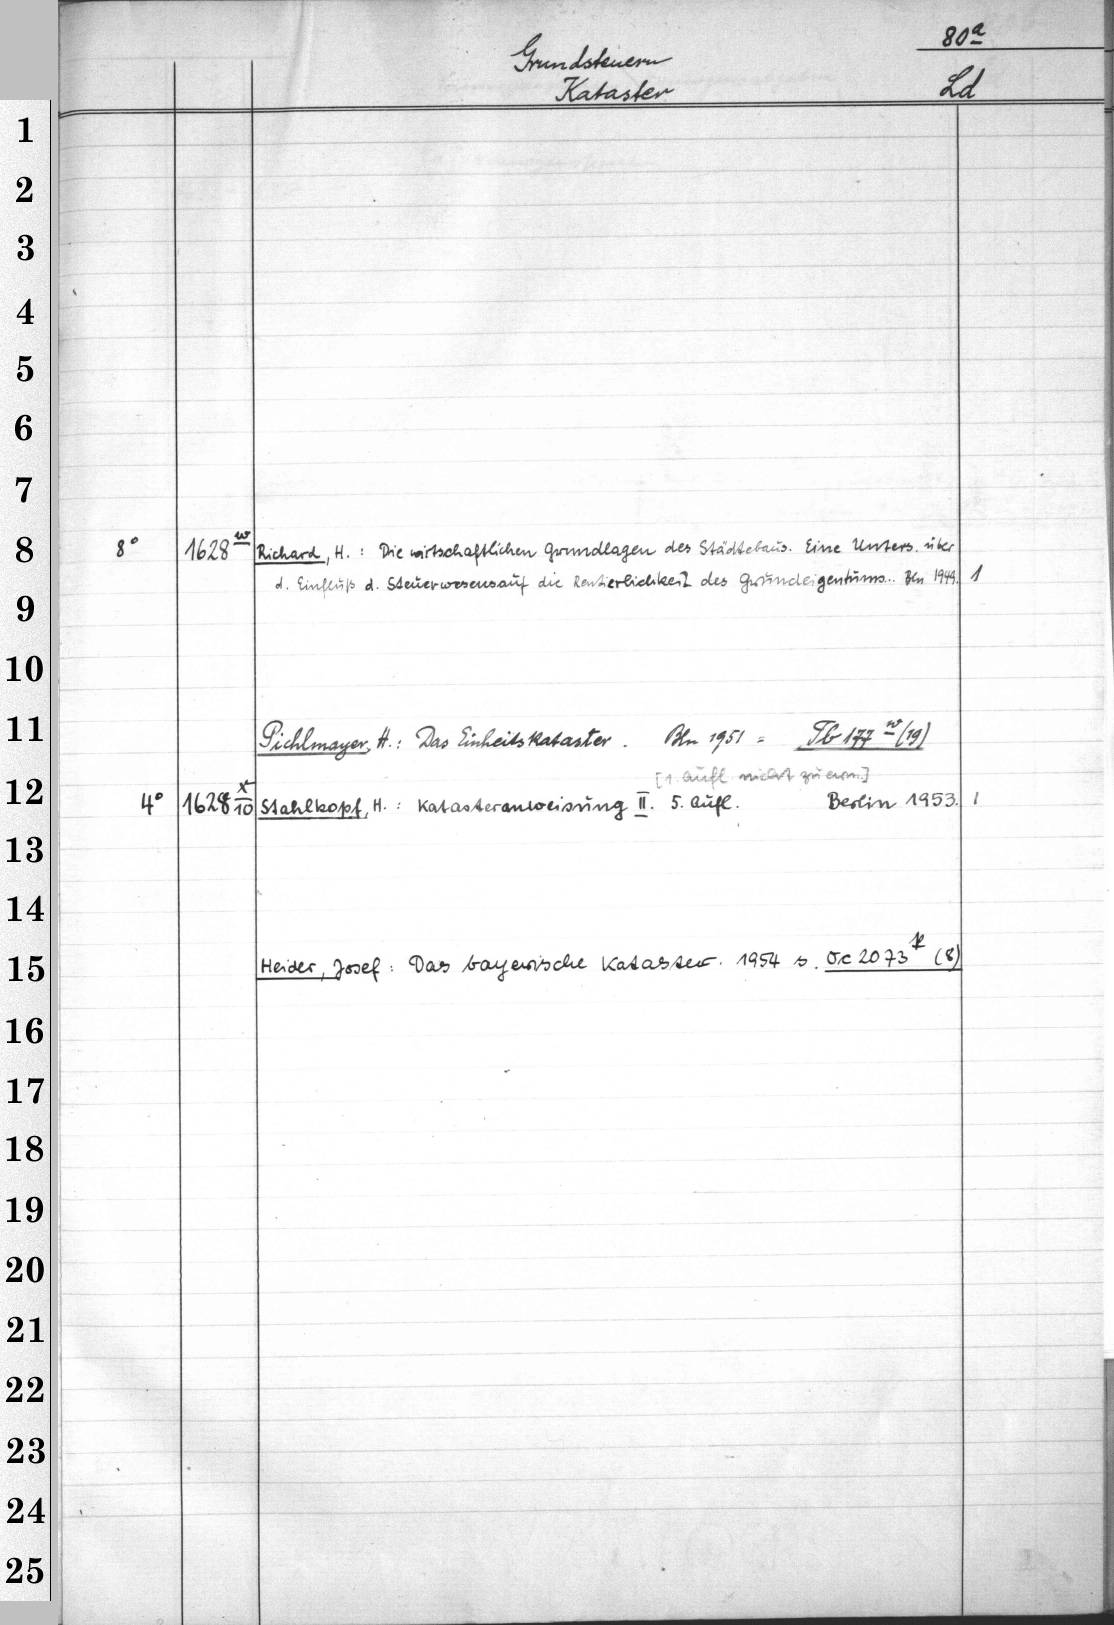 80a
Grundsteuern
Kataster
Ld
1
2
3
4
5
6
7
8
8° 1628 w Richard, H. : Die wirtschaftlichen Grundlagen des Städtebaus. Eine Unters. über
d. Einfluß d. Steuerwesens auf die Rentierlichkeit des Grundeigentums.. Bln 1949. 1
9
10
11
Pichlmayer, H.: Das Einheitskataster. Bln 1951 = Tb 177 w (19)
[1. Aufl. nicht zu erm.]
12
4° 1628 x/10 Stahlkopf, H. : Katasteranweisung II. 5. Aufl. Berlin 1953. 1
13
14
15
Heider, Josef : Das bayerische Kataster. 1954 s. Oc 2073 k (8)
16
17
18
19
20
21
22
23
24
25